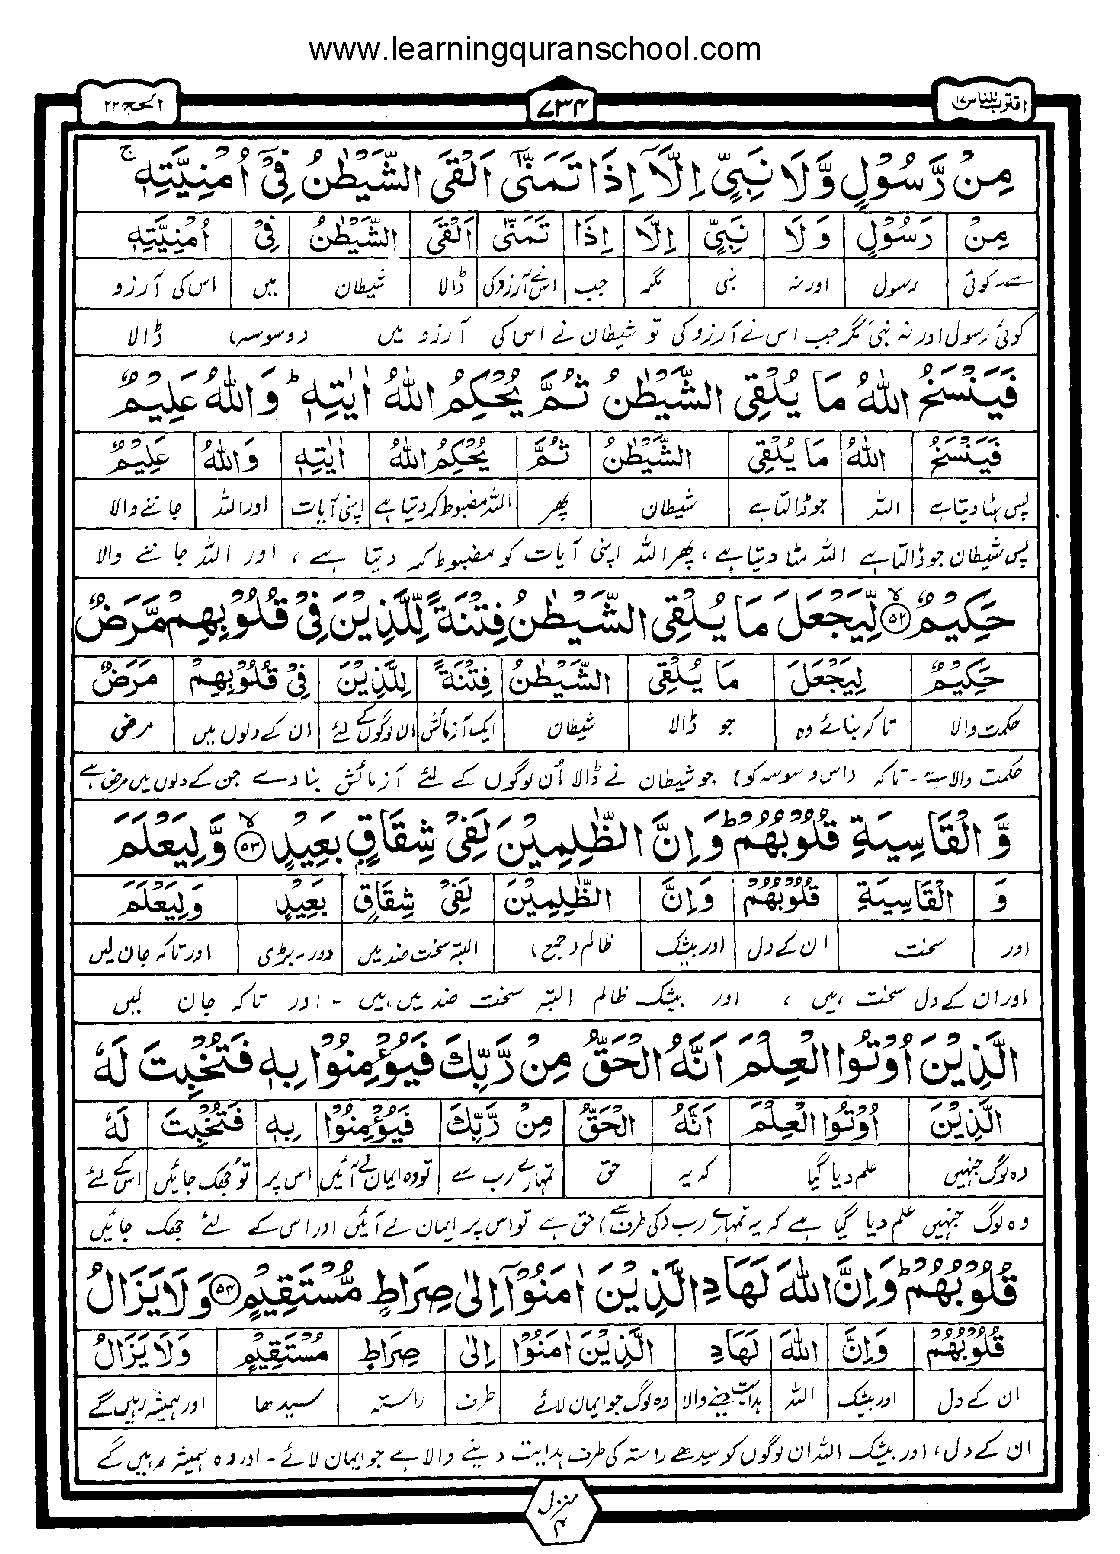 www.learningquranschool.com
اقترب للناس ۱۷ ۷۳۴ الحج ۲۲
مِنْ رَّسُوْلٍ وَّلَا نَبِيٍّ اِلَّآ اِذَا تَمَنّٰٓى اَلْقَى الشَّيْطٰنُ فِيْٓ اُمْنِيَّتِهٖ ۚ
مِنْ رَسُوْلٍ وَلَا نَبِيٍّ اِلَّا اِذَا تَمَنّٰى اَلْقَى الشَّيْطٰنُ فِيْ اُمْنِيَّتِهٖ
سے۔کوئی رسول اور نہ نبی مگر جب اس نے آرزو کی ڈالا شیطان میں اس کی آرزو
کوئی رسول اور نہ نبی مگر جب اس نے آرزو کی تو شیطان نے اس کی آرزو میں (وسوسہ) ڈالا
فَيَنْسَخُ اللّٰهُ مَا يُلْقِى الشَّيْطٰنُ ثُمَّ يُحْكِمُ اللّٰهُ اٰيٰتِهٖ ؕ وَاللّٰهُ عَلِيْمٌ
فَيَنْسَخُ اللّٰهُ مَا يُلْقِى الشَّيْطٰنُ ثُمَّ يُحْكِمُ اللّٰهُ اٰيٰتِهٖ وَاللّٰهُ عَلِيْمٌ
پس ہٹا دیتا ہے اللہ جو ڈالتا ہے شیطان پھر اللہ مضبوط کر دیتا ہے اپنی آیات اور اللہ جاننے والا
پس شیطان جو ڈالتا ہے اللہ مٹا دیتا ہے، پھر اللہ اپنی آیات کو مضبوط کر دیتا ہے، اور اللہ جاننے والا
حَكِيْمٌ ۙ‏۵۲ لِّيَجْعَلَ مَا يُلْقِى الشَّيْطٰنُ فِتْنَةً لِّلَّذِيْنَ فِيْ قُلُوْبِهِمْ مَّرَضٌ
حَكِيْمٌ لِيَجْعَلَ مَا يُلْقِى الشَّيْطٰنُ فِتْنَةً لِلَّذِيْنَ فِيْ قُلُوْبِهِمْ مَرَضٌ
حکمت والا تاکہ بنائے وہ جو ڈالا شیطان ایک آزمائش ان لوگوں کے لئے ان کے دلوں میں مرض
حکمت والا ہے۔ تاکہ (اس وسوسہ کو) جو شیطان نے ڈالا اُن لوگوں کے لئے آزمائش بنا دے جن کے دلوں میں مرض ہے
وَّ الْقَاسِيَةِ قُلُوْبُهُمْ ؕ وَاِنَّ الظّٰلِمِيْنَ لَفِيْ شِقَاقٍ بَعِيْدٍ ۙ‏۵۳ وَّلِيَعْلَمَ
وَ الْقَاسِيَةِ قُلُوْبُهُمْ وَاِنَّ الظّٰلِمِيْنَ لَفِيْ شِقَاقٍ بَعِيْدٍ وَلِيَعْلَمَ
اور سخت ان کے دل اور بیشک ظالم (جمع) البتہ سخت ضد میں دور۔بڑی اور تاکہ جان لیں
اور ان کے دل سخت ہیں، اور بیشک ظالم البتہ سخت ضد میں ہیں۔ اور تاکہ جان لیں
الَّذِيْنَ اُوْتُوا الْعِلْمَ اَنَّهُ الْحَقُّ مِنْ رَّبِّكَ فَيُؤْمِنُوْا بِهٖ فَتُخْبِتَ لَهٗ
الَّذِيْنَ اُوْتُوا الْعِلْمَ اَنَّهُ الْحَقُّ مِنْ رَبِّكَ فَيُؤْمِنُوْا بِهٖ فَتُخْبِتَ لَهٗ
وہ لوگ جنہیں علم دیا گیا کہ یہ حق تمہارے رب سے تو وہ ایمان لے آئیں اس پر تو جھک جائیں اس کے لئے
وہ لوگ جنہیں علم دیا گیا ہے کہ یہ تمہارے رب (کی طرف سے) حق ہے تو اس پر ایمان لے آئیں اور اس کے لئے جھک جائیں
قُلُوْبُهُمْ ؕ وَاِنَّ اللّٰهَ لَهَادِ الَّذِيْنَ اٰمَنُوْٓا اِلٰى صِرَاطٍ مُّسْتَقِيْمٍ ‏۵۴ وَلَا يَزَالُ
قُلُوْبُهُمْ وَاِنَّ اللّٰهَ لَهَادِ الَّذِيْنَ اٰمَنُوْا اِلٰى صِرَاطٍ مُسْتَقِيْمٍ وَلَا يَزَالُ
ان کے دل اور بیشک اللہ ہدایت دینے والا وہ لوگ جو ایمان لائے طرف راستہ سیدھا اور ہمیشہ رہیں گے
ان کے دل، اور بیشک اللہ ان لوگوں کو سیدھے راستہ کی طرف ہدایت دینے والا ہے جو ایمان لائے۔ اور وہ ہمیشہ رہیں گے
منزل ۴